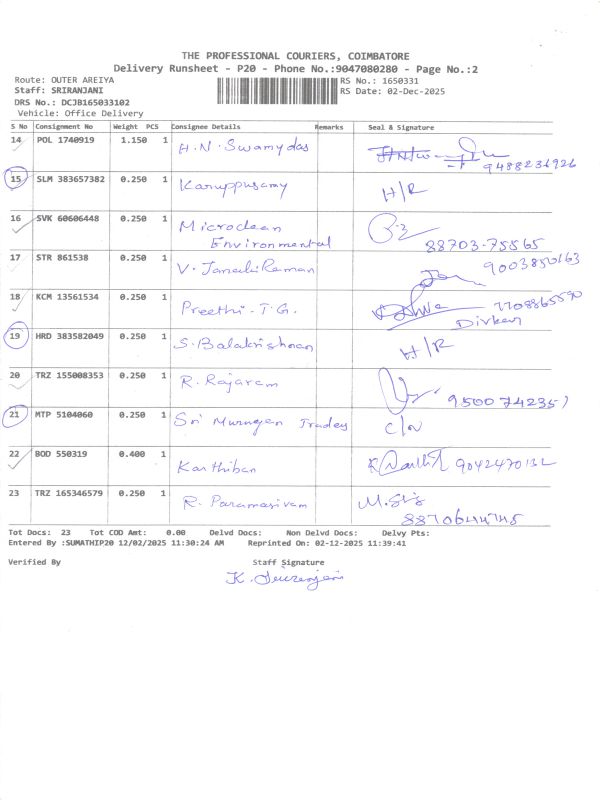 THE PROFESSIONAL COURIERS, COIMBATORE
Delivery Runsheet - P20 - Phone No.:9047080280 - Page No.:2
Route: OUTER AREIYA RS No.: 1650331
Staff: SRIRANJANI RS Date: 02-Dec-2025
DRS No.: DCJB165033102
Vehicle: Office Delivery
S No Consignment No Weight PCS Consignee Details Remarks Seal & Signature
14 POL 1740919 1.150 1 H.N. Swamydas
9488236926
15 SLM 383657382 0.250 1 Karuppusamy H/R
16 SVK 60606448 0.250 1 Microclean
Environmental 88703-75565
17 STR 861538 0.250 1 V. JanakiRaman 9003850163
18 KCM 13561534 0.250 1 Preethi.T.G. 7708865590
19 HRD 383582049 0.250 1 S. Balakrishnan H/R
20 TRZ 155008353 0.250 1 R. Rajaram
21 MTP 5104060 0.250 1 Sri Murugan Tradey
22 BOD 550319 0.400 1 Karthiban
23 TRZ 165346579 0.250 1 R. Paramasivam
Tot Docs: 23 Tot COD Amt: 0.00 Delvd Docs: Non Delvd Docs: Delvy Pts:
Entered By :SUMATHIP20 12/02/2025 11:30:24 AM Reprinted On: 02-12-2025 11:39:41
Verified By Staff Signature